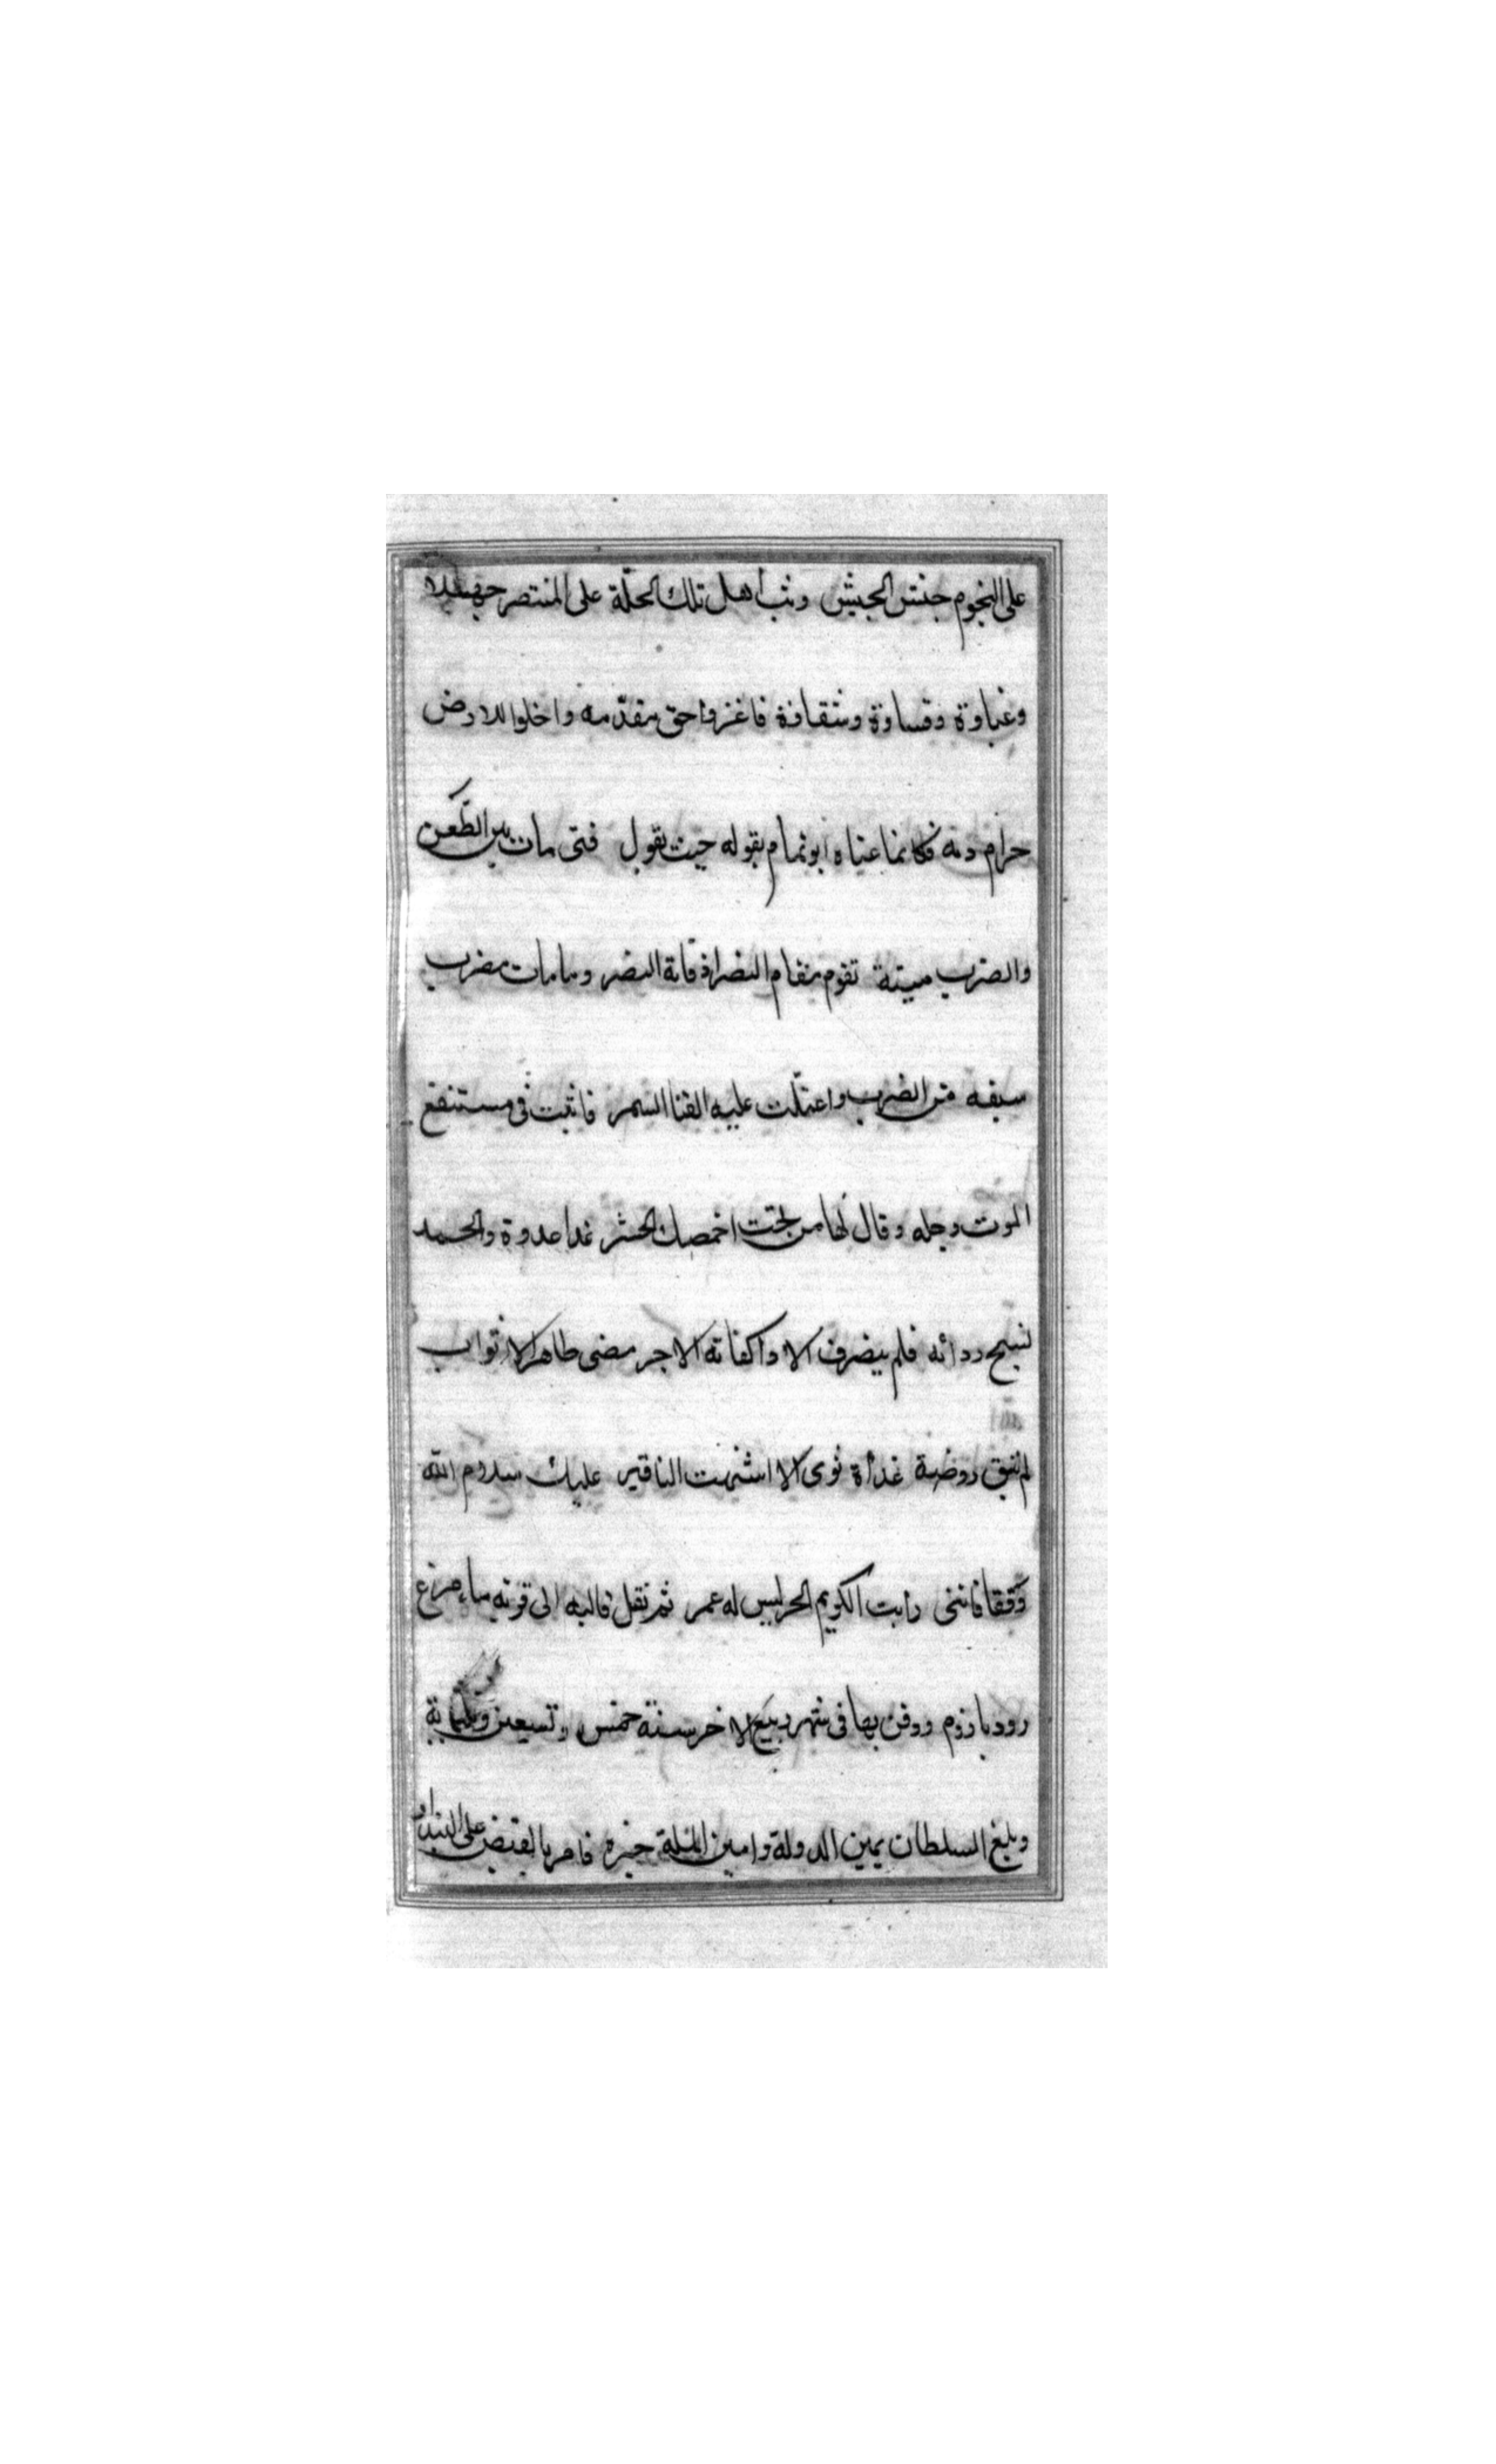 على النجوم جنش الجيش وثب اهل تلك الحلّة على المنتصر جهلا
وغباوة وقساوة وشقافة فاغزوا حق مقدّمه واخلوا للارض
حرام دمه فكانما عناه ابو تمام بقوله حيث يقول فتى مات بين الطّعن
والضرب ميتة تقوم مقام النصر اذ فاته النصر وما مات مضرب
سيفه من الضرب واعتلّت عليه القنا السمر فاثبت فى مستنقع
الموت رجله وقال لها من تحت اخمصك الحشر غدا غدوة والحمد
نسيج ردائه فلم ينصرف الا واكفانه الاجر مضى طاهر الاثواب
لم تبق روضة غداة ثوى الا اشتهت انها قبر عليك سلام الله
وقفا فاننى رأيت الكريم الحر ليس له عمر ثم نقل قالبه الى قرية مايمرغ
رودبارزم ودفن بها فى شهر ربيع الاخر سنة خمس وتسعين وثلثماية
وبلغ السلطان يمين الدولة وامين الملة خبره فامر بالقبض على ابن